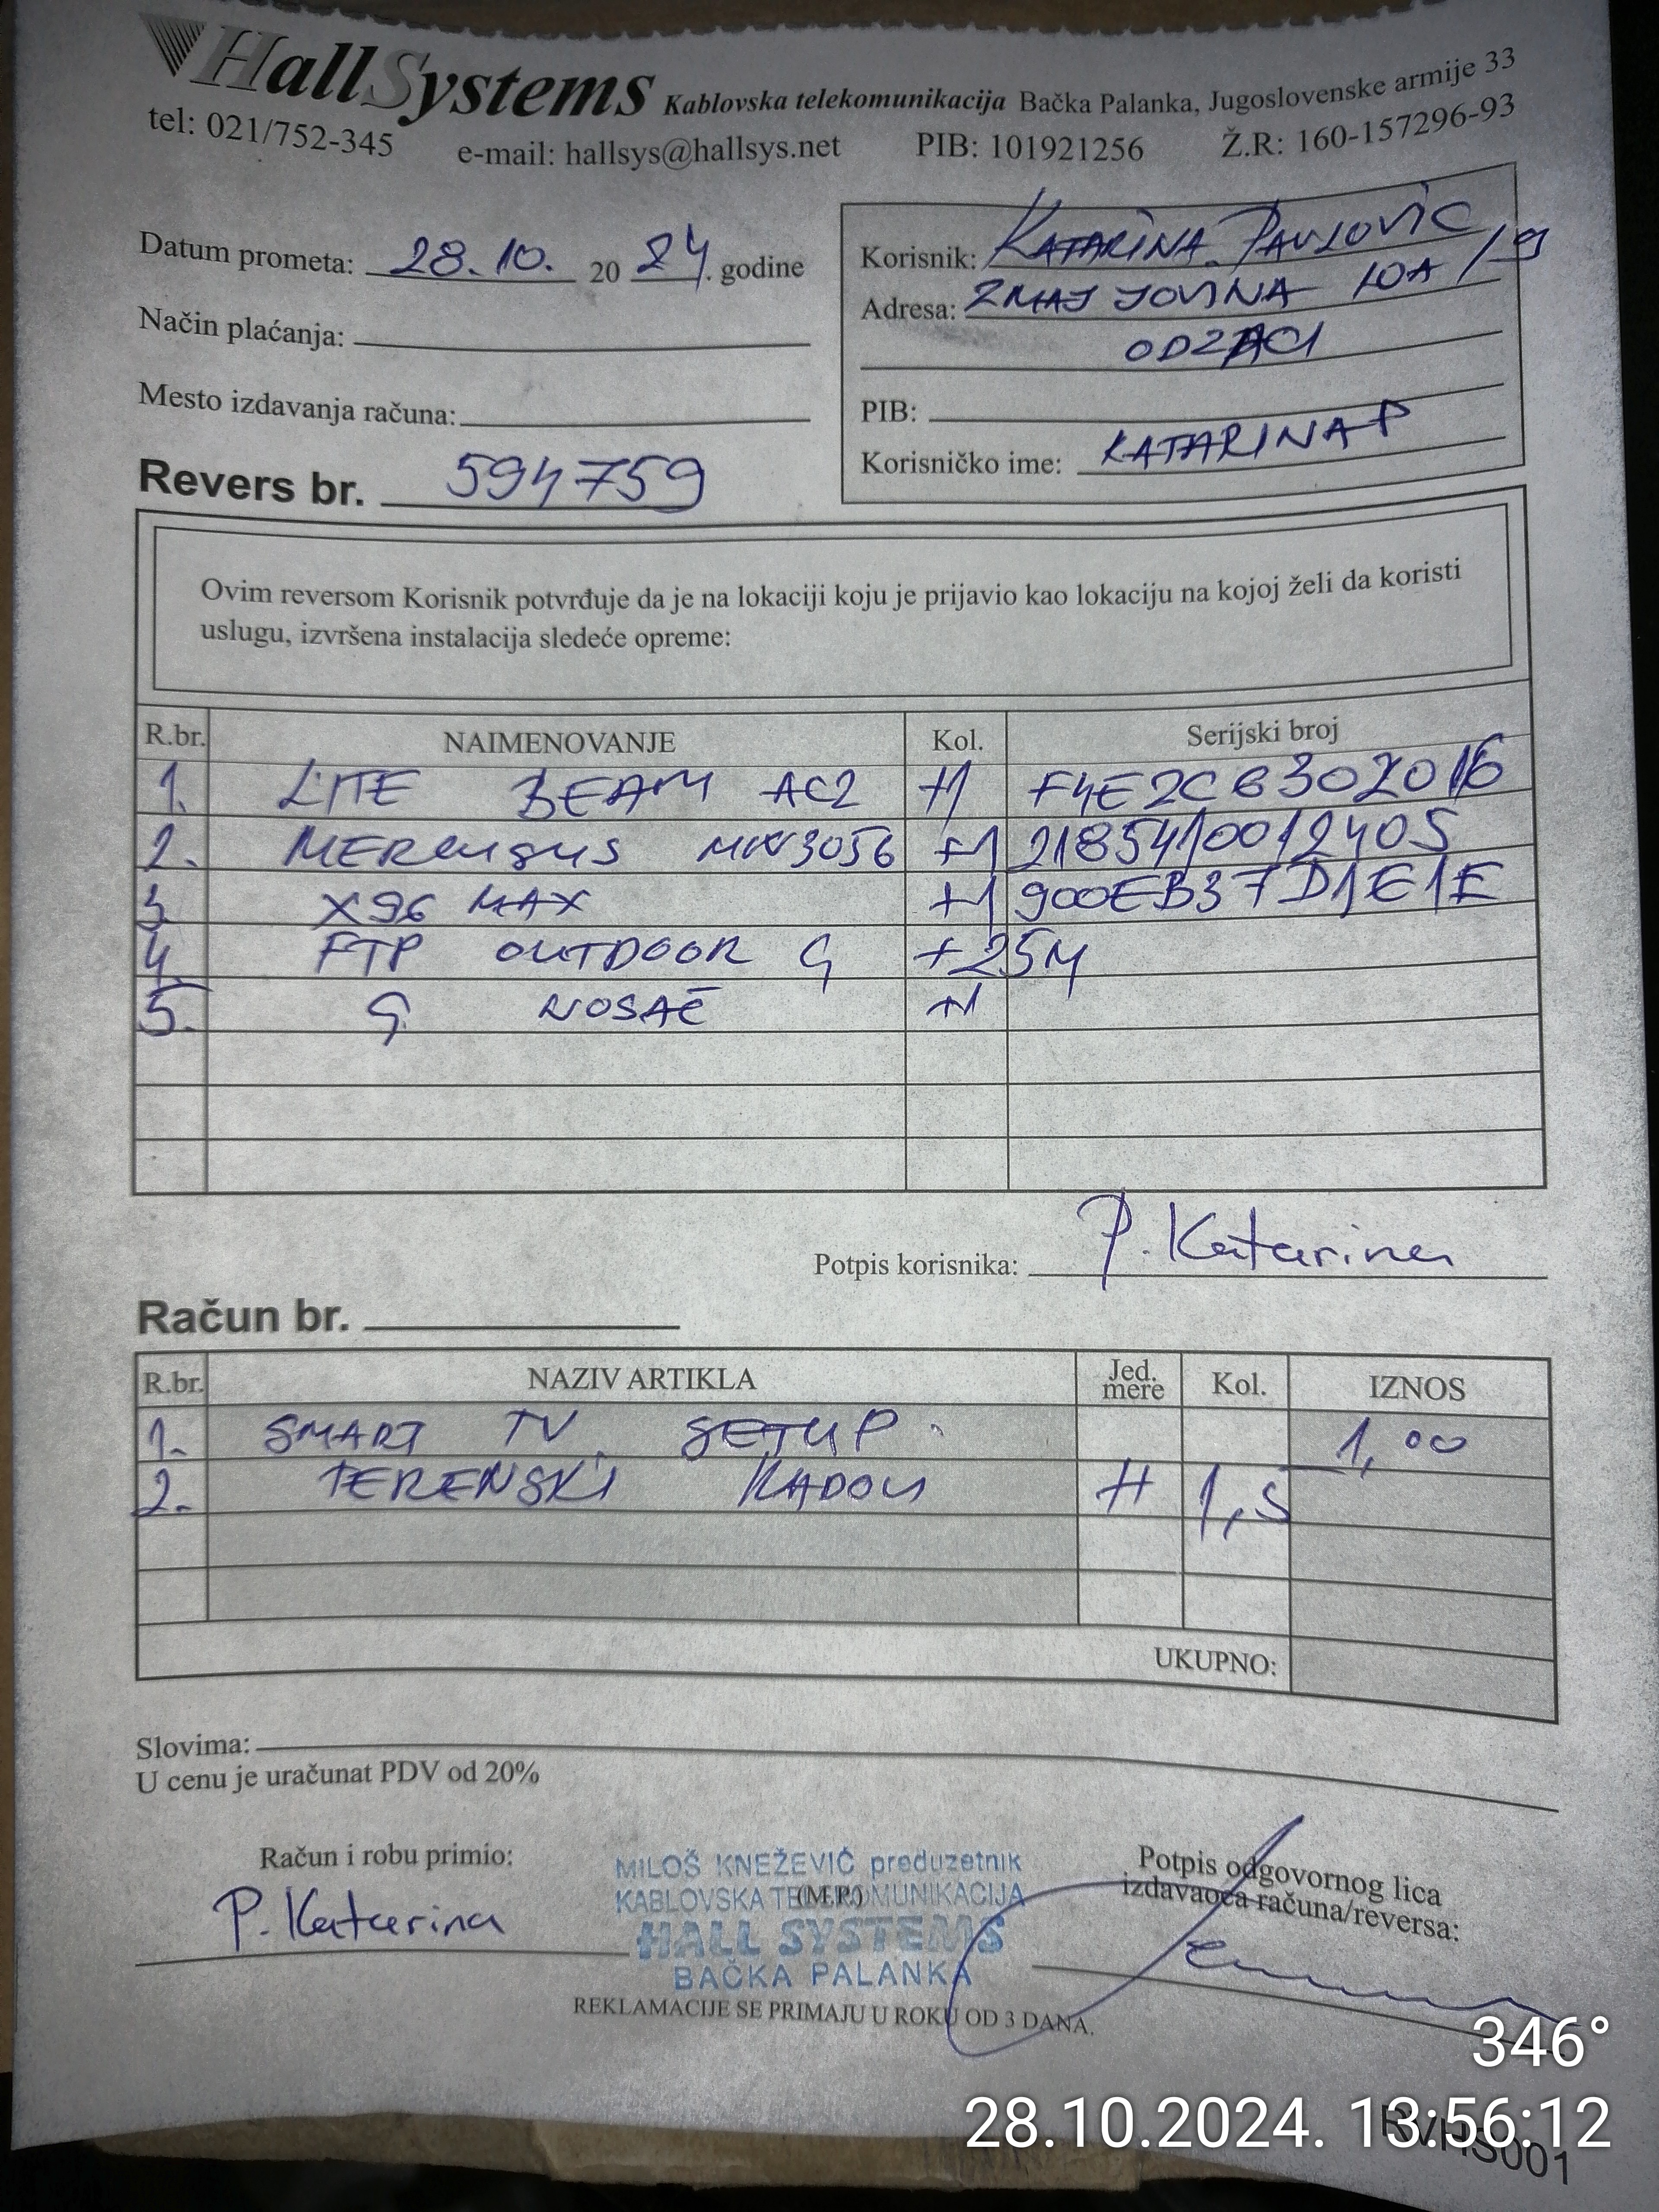 HallSystems Kablovska telekomunikacija Bačka Palanka, Jugoslovenske armije 33
tel: 021/752-345 e-mail: hallsys@hallsys.net PIB: 101921256 Ž.R: 160-157296-93
Datum prometa: 28.10. 20 24. godine
Način plaćanja:
Mesto izdavanja računa:
Revers br. 594759
Korisnik: KATARINA PAVLOVIĆ
Adresa: ZMAJ JOVINA 10A/9
ODZACI
PIB:
Korisničko ime: KATARINAP
Ovim reversom Korisnik potvrđuje da je na lokaciji koju je prijavio kao lokaciju na kojoj želi da koristi
uslugu, izvršena instalacija sledeće opreme:
R.br. NAIMENOVANJE Kol. Serijski broj
1. LITE BEAM AC2 +1 F4E2C6302016
2. MERCUSYS MW305 +1 2185410012405
3 X96 MAX +1 900EB37D1E1E
4. FTP OUTDOOR G +25M
5. G NOSAČ +1
Potpis korisnika: P. Katarina
Račun br.
R.br. NAZIV ARTIKLA Jed. mere Kol. IZNOS
1. SMART TV SETUP 1,00
2. TERENSKI RADOVI H 1,5
UKUPNO:
Slovima:
U cenu je uračunat PDV od 20%
Račun i robu primio:
P. Katarina
MILOŠ KNEŽEVIĆ preduzetnik
KABLOVSKA TELEKOMUNIKACIJA
(M.P.)
HALL SYSTEMS
BAČKA PALANKA
Potpis odgovornog lica
izdavaoca računa/reversa:
REKLAMACIJE SE PRIMAJU U ROKU OD 3 DANA.
346°
28.10.2024. 13:56:12
RVHS001